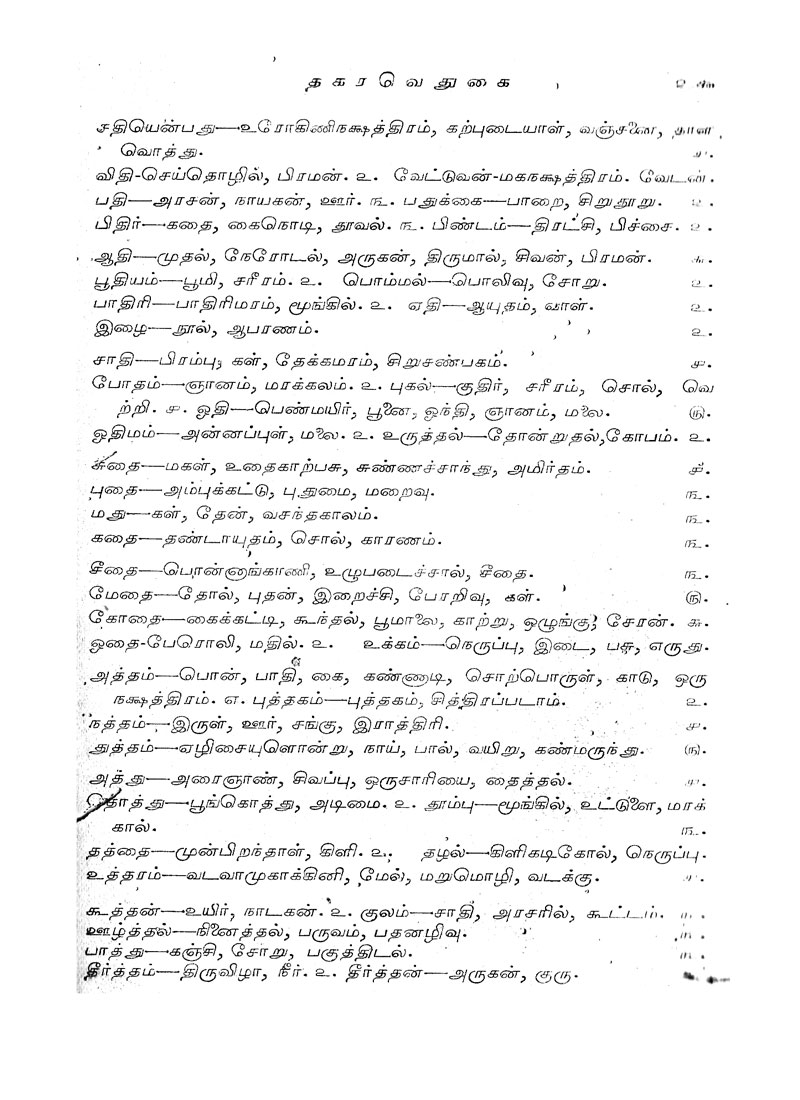 தகரவெதுகை
சதியென்பது—உரோகிணிநக்ஷத்திரம், கற்புடையாள், வஞ்சனை, தாள
வொத்து. ௪.
விதி-செய்தொழில், பிரமன். ௨. வேட்டுவன்-மகநக்ஷத்திரம். வேடன்.
பதி—அரசன், நாயகன், ஊர். ௩. பதுக்கை—பாறை, சிறுதூறு. ௨.
பிதிர்—கதை, கைநொடி, தூவல். ௩. பிண்டம்—திரட்சி, பிச்சை. ௨.
ஆதி—முதல், நேரோடல், அருகன், திருமால், சிவன், பிரமன். ௬.
பூதியம்—பூமி, சரீரம். ௨. பொம்மல்—பொலிவு, சோறு. ௨.
பாதிரி—பாதிரிமரம், மூங்கில். ௨. ஏதி—ஆயுதம், வாள். ௨.
இழை—நூல், ஆபரணம். ௨.
சாதி—பிரம்பு, கள், தேக்கமரம், சிறுசண்பகம். ௪.
போதம்—ஞானம், மரக்கலம். ௨. புகல்—குதிர், சரீரம், சொல், வெ
ற்றி. ௪. ஓதி—பெண்மயிர், பூனை, ஓந்தி, ஞானம், மலை. ௫.
ஓதிமம்—அன்னப்புள், மலை. ௨. உருத்தல்—தோன்றுதல்,கோபம். ௨.
சுதை—மகள், உதைகாற்பசு, சுண்ணச்சாந்து, அமிர்தம். ௪.
புதை—அம்புக்கட்டு, புதுமை, மறைவு. ௩.
மது—கள், தேன், வசந்தகாலம். ௩.
கதை—தண்டாயுதம், சொல், காரணம். ௩.
சீதை—பொன்னாங்காணி, உழுபடைச்சால், சீதை. ௩.
மேதை—தோல், புதன், இறைச்சி, பேரறிவு, கள். ௫.
கோதை—கைக்கட்டி, கூந்தல், பூமாலை, காற்று, ஒழுங்கு, சேரன். ௬.
ஓதை-பேரொலி, மதில். ௨. உக்கம்—நெருப்பு, இடை, பசு, எருது.
அத்தம்—பொன், பாதி, கை, கண்ணாடி, சொற்பொருள், காடு, ஒரு
நக்ஷத்திரம். ௭. புத்தகம்—புத்தகம், சித்திரப்படாம். ௨.
நத்தம்—இருள், ஊர், சங்கு, இராத்திரி. ௪.
துத்தம்—ஏழிசையுளொன்று, நாய், பால், வயிறு, கண்மருந்து. ௫.
அத்து—அரைஞாண், சிவப்பு, ஒருசாரியை, தைத்தல். ௪.
தொத்து—பூங்கொத்து, அடிமை. ௨. தூம்பு—மூங்கில், உட்டுளை, மரக்
கால். ௩.
தத்தை—முன்பிறந்தாள், கிளி. ௨. தழல்—கிளிகடிகோல், நெருப்பு.
உத்தரம்—வடவாமுகாக்கினி, மேல், மறுமொழி, வடக்கு. ௪.
கூத்தன்—உயிர், நாடகன். ௨. குலம்—சாதி, அரசரில், கூட்டம். ௩.
ஊழ்த்தல்—நினைத்தல், பருவம், பதனழிவு. ௩.
பாத்து—கஞ்சி, சோறு, பகுத்திடல். ௩.
தீர்த்தம்—திருவிழா, நீர். ௨. தீர்த்தன்—அருகன், குரு.